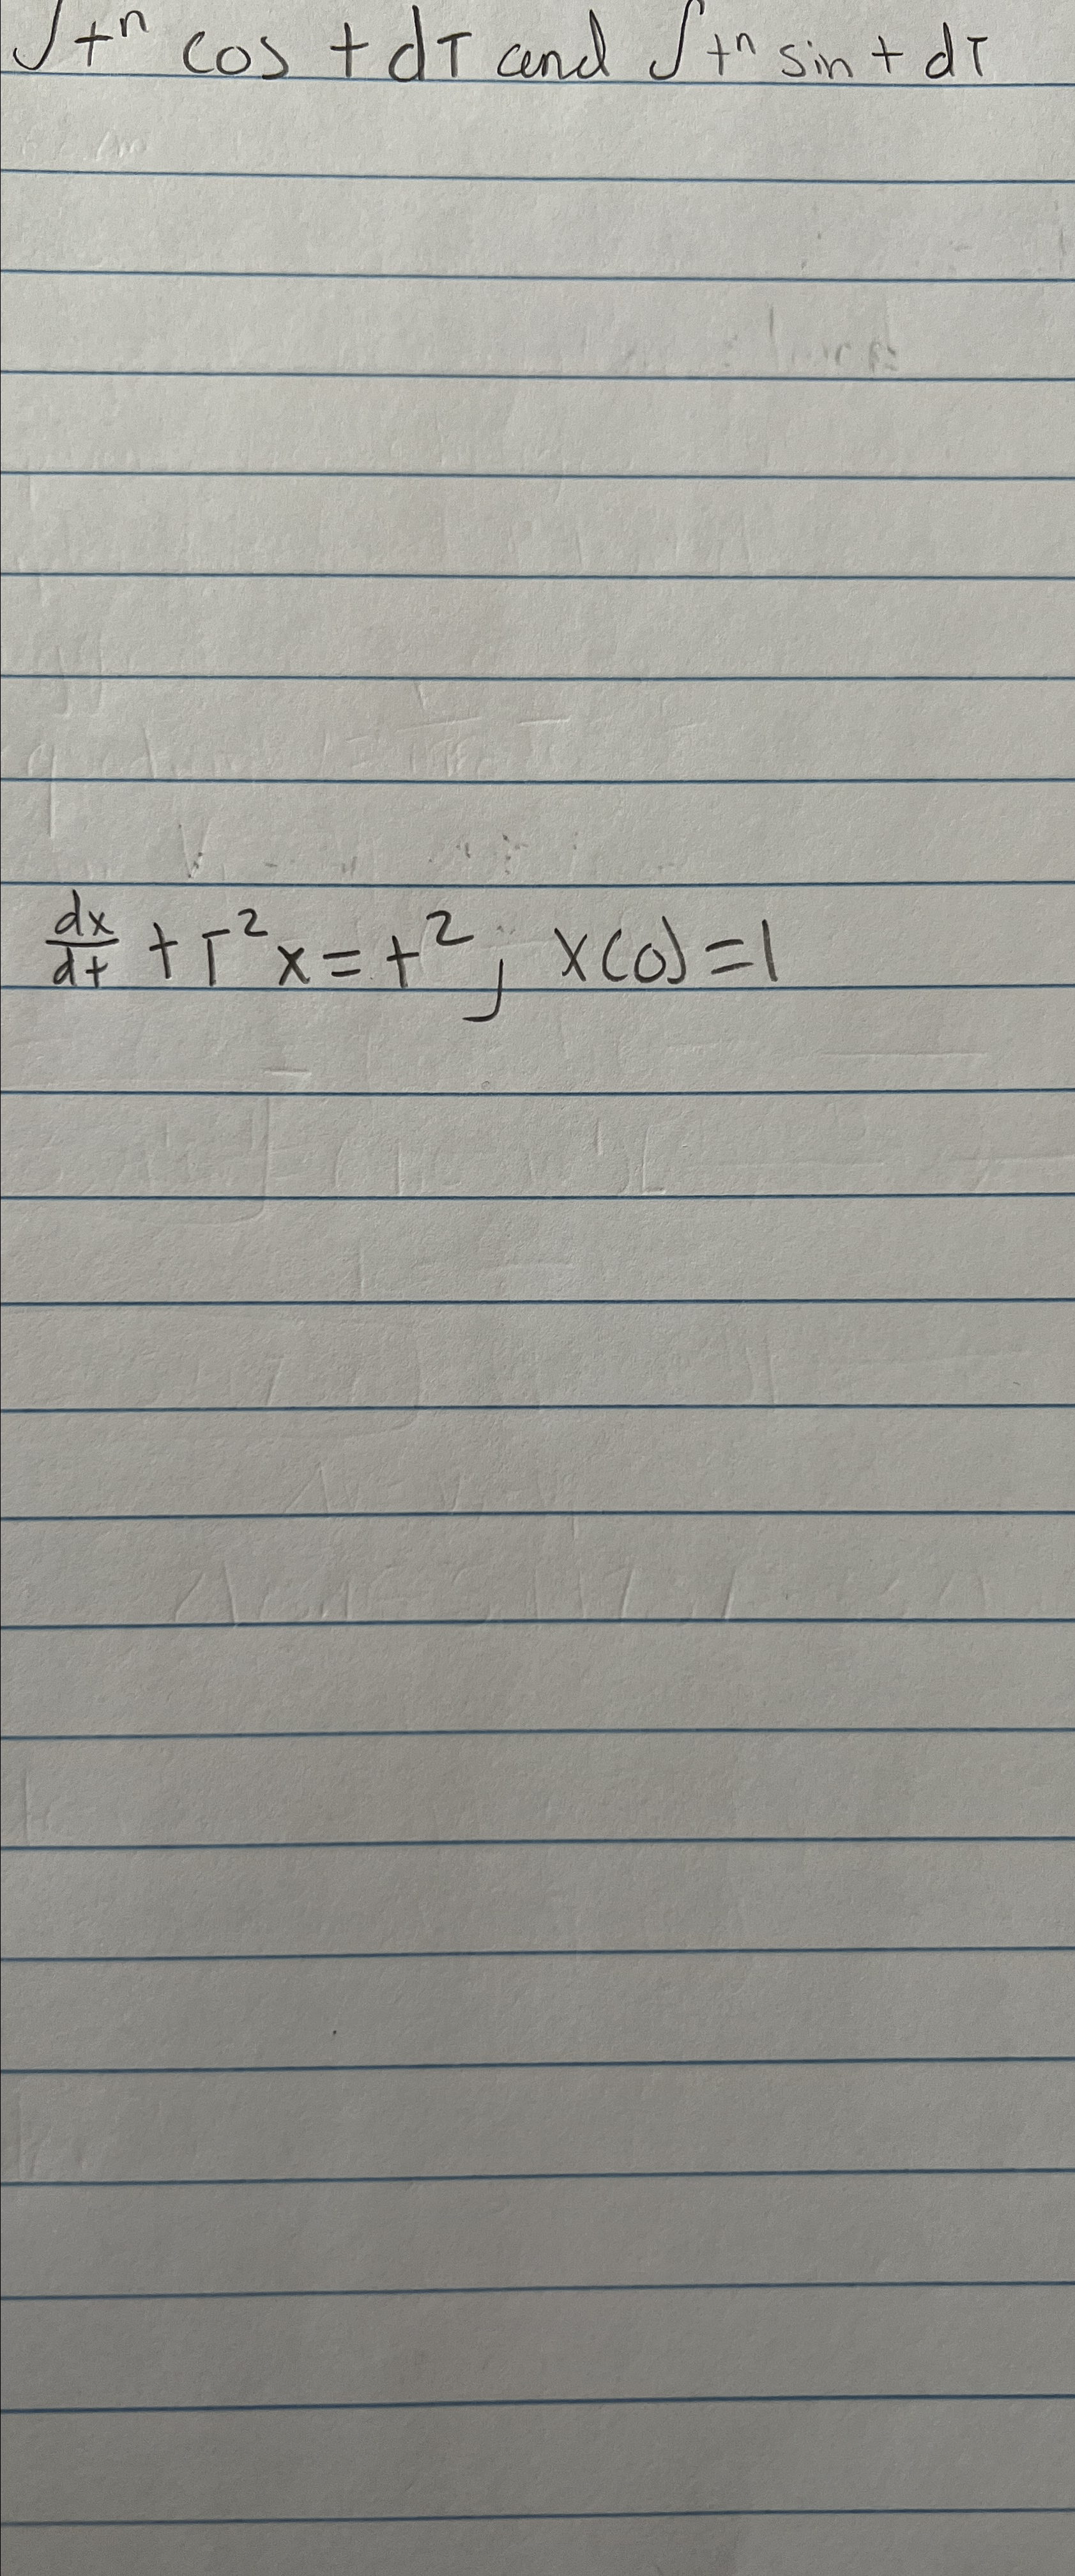 ∫tⁿ cos t dT and ∫tⁿ sin t dT
dx/dt + T²x = t², x(0) = 1